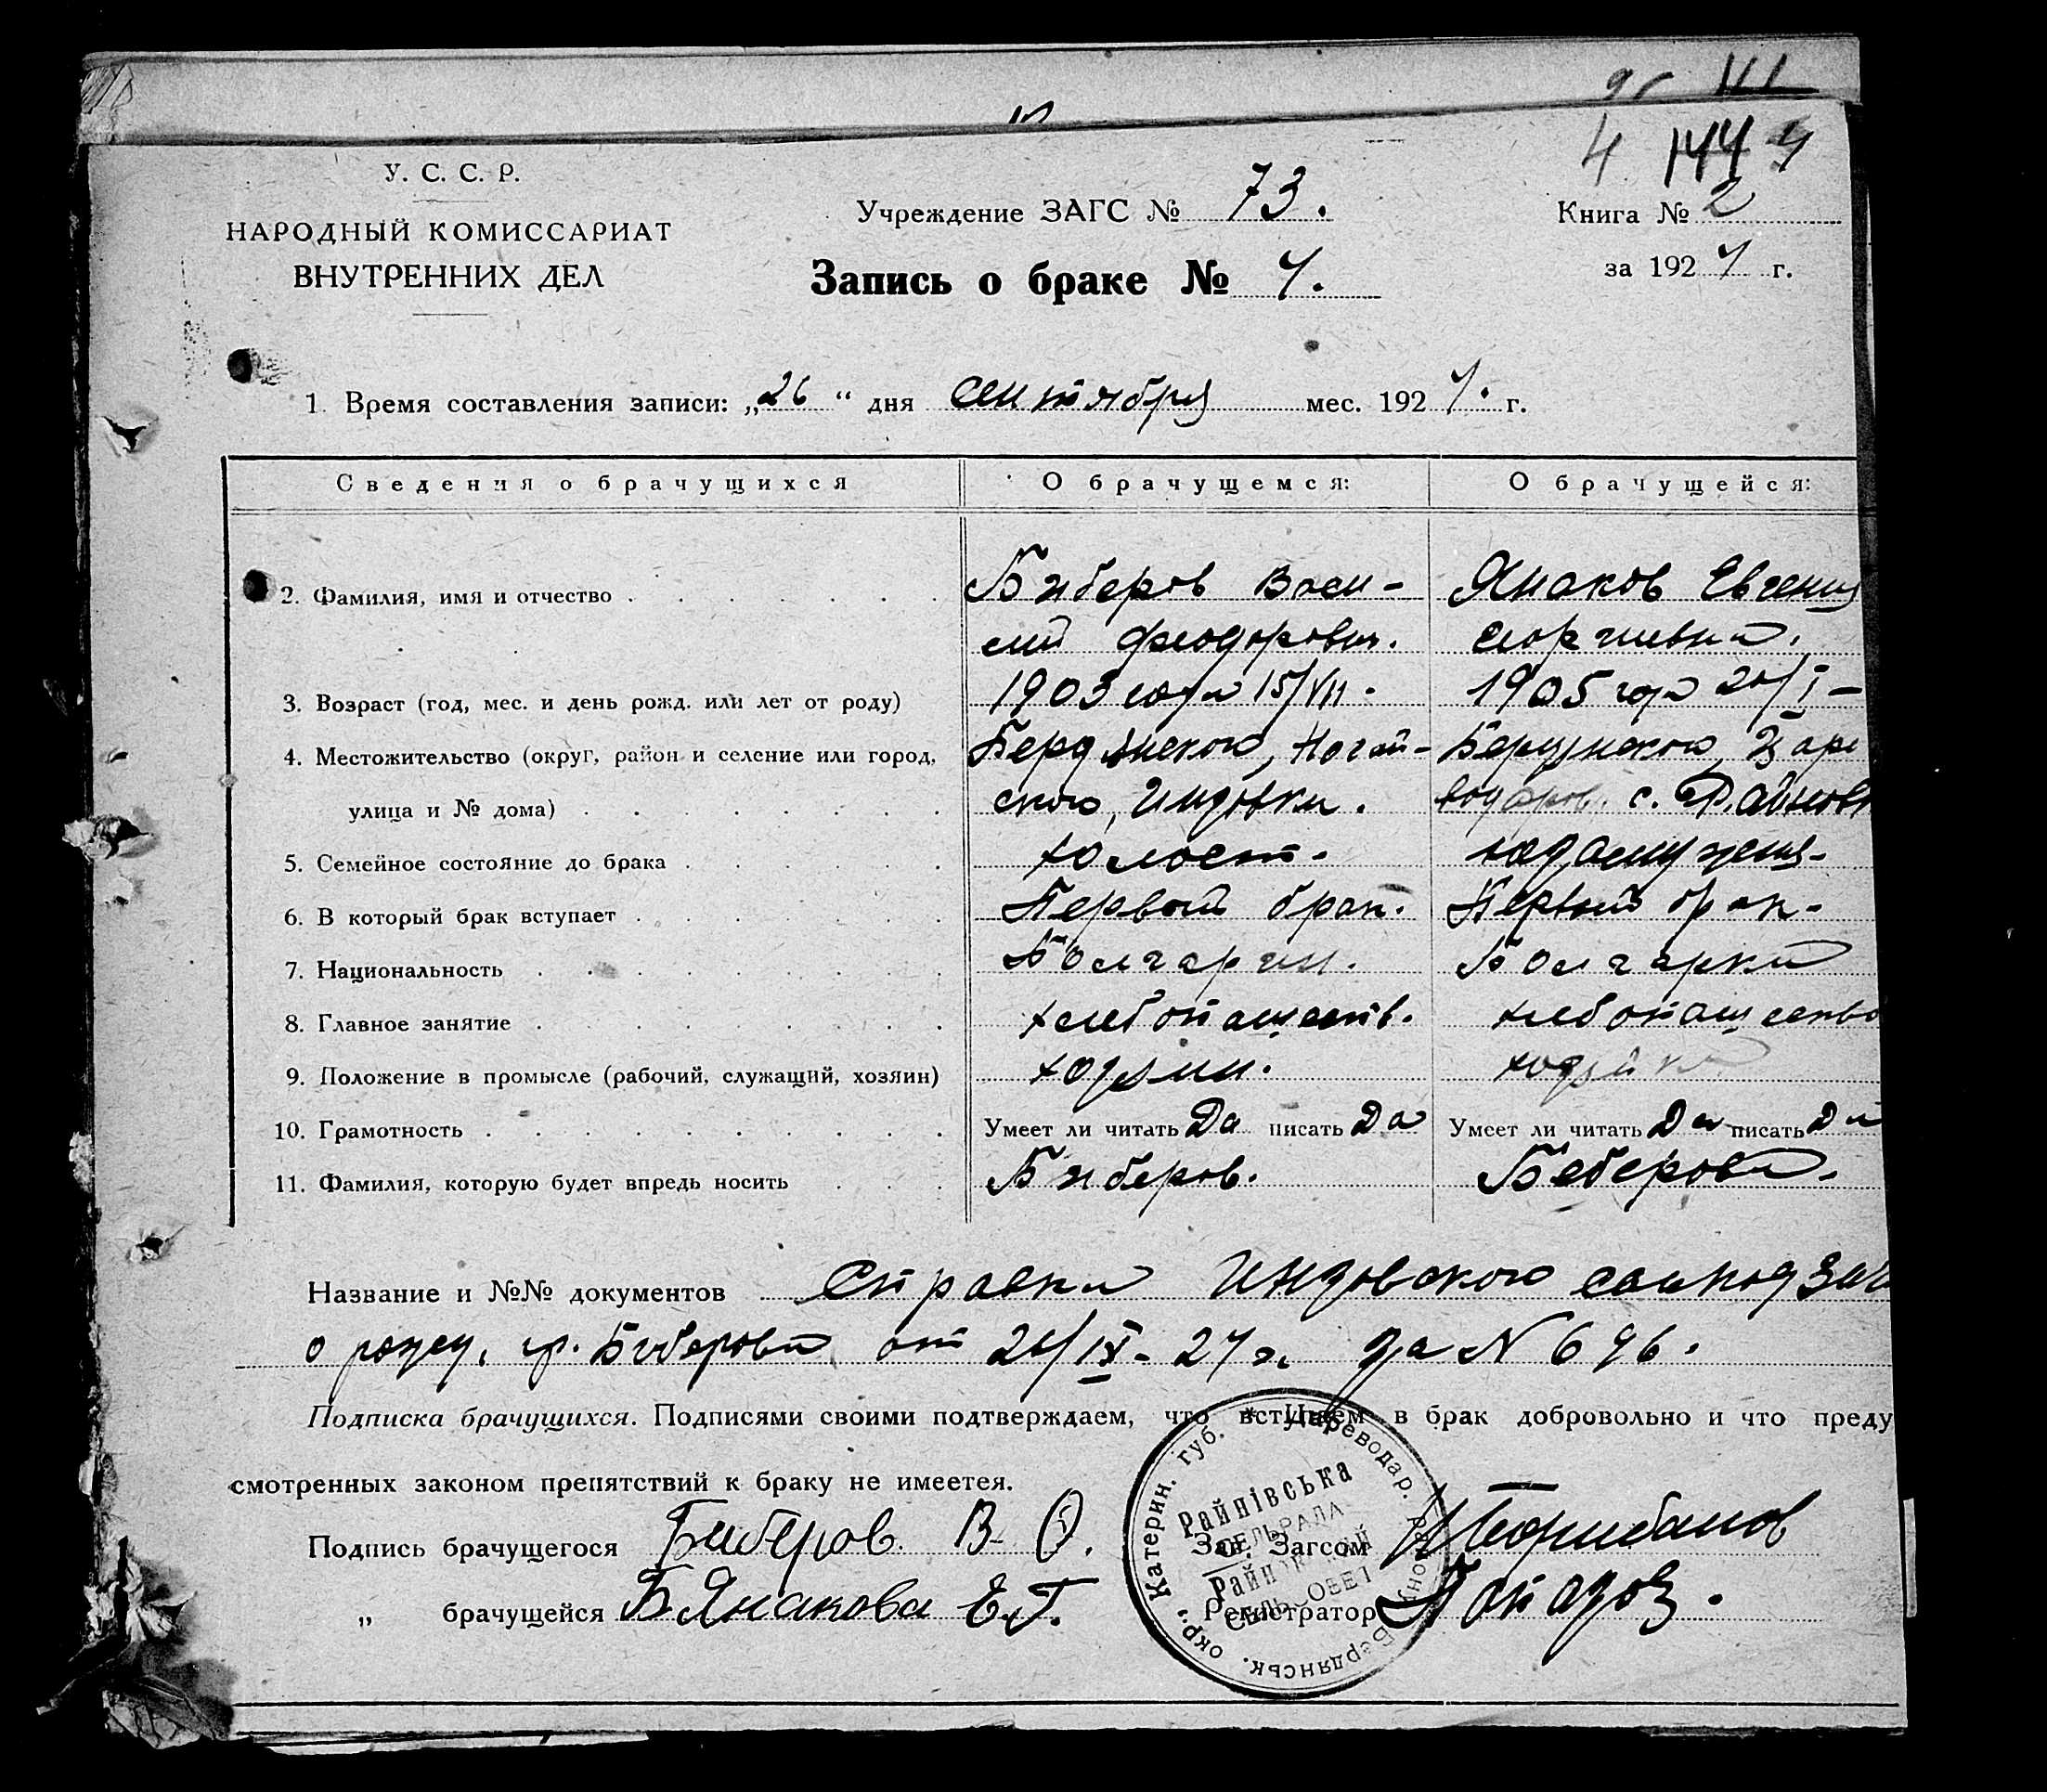 4 144 4
У. С. С. Р.
НАРОДНЫЙ КОМИССАРИАТ
ВНУТРЕННИХ ДЕЛ
Учреждение ЗАГС № 73.
Книга № 2
Запись о браке № 7.
за 1927 г.
1. Время составления записи: „26“ дня сентября мес. 1927. г.
Сведения о брачущихся О брачущемся: О брачущейся:
2. Фамилия, имя и отчество Бяберов Васи- Янаков Евгения
лий Феодоров.
3. Возраст (год, мес. и день рожд. или лет от роду) 1903 года 15/VII. 1905 года 20/I –
4. Местожительство (округ, район и селение или город, Бердянского, Ногай- Бердянского, Царе
улица и № дома) ского, Инзовки. водаров. с. Райновк
5. Семейное состояние до брака холост.
6. В который брак вступает Первый брак. Первый брак.
7. Национальность Болгарин. Болгарка
8. Главное занятие хлебопашеств. хлебопашество
9. Положение в промысле (рабочий, служащий, хозяин) хозяин. хозяйка
10. Грамотность Умеет ли читать Да писать Да Умеет ли читать Да писать Да
11. Фамилия, которую будет впредь носить Бяберов. Беберова.
Название и №№ документов Справка Инзовского
о рожд. гр. Биберова от 26/IX - 27 г. за N 696.
Подписка брачущихся. Подписями своими подтверждаем, что вступаем в брак добровольно и что преду
смотренных законом препятствий к браку не имеется.
Подпись брачущегося Биберов В. Ф. Зав. Загсом
„ брачущейся Б Янакова Е. Г. Регистратор
Катерин. губ. * Цареводар. району Бердянськ. окр.
Райнівська
СЕЛЬРАДА
Райновский
СЕЛЬСОВЕТ